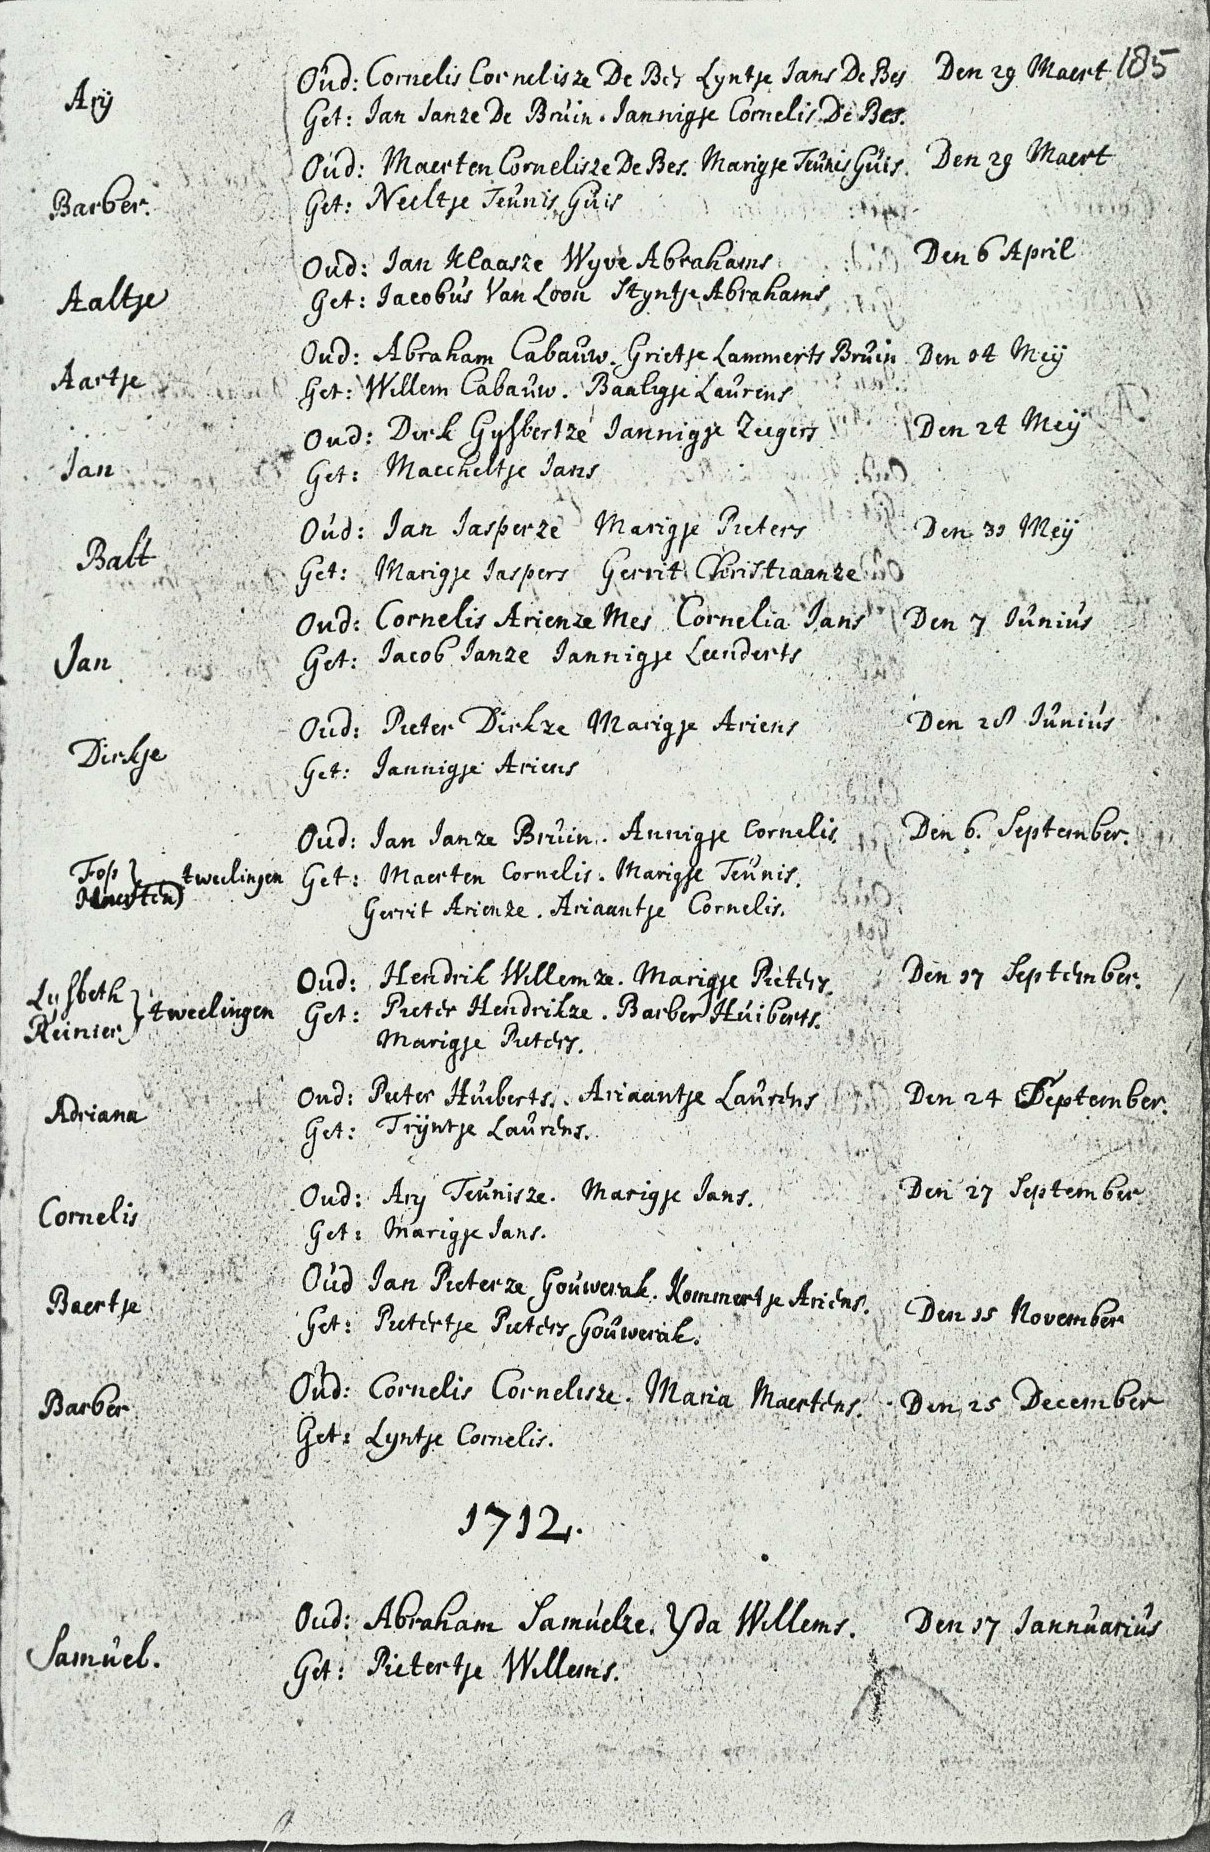 185
Arÿ
Oud: Cornelis Cornelisze De Bes Lyntje Jans De Bes
Den 29 Maert
Get: Jan Janze De Bruin. Jannigje Cornelis De Bes.
Barber.
Oud: Maerten Cornelisze De Bes. Marigje Teunis Guis.
Den 29 Maert
Get: Neeltje Teunis Guis
Aaltje
Oud: Jan Klaasze Wyve Abrahams
Den 6 April
Get: Jacobus Van Loon Styntje Abrahams
Aartje
Oud: Abraham Cabauw. Grietje Lammerts Bruin
Den 04 Meÿ
Get: Willem Cabauw. Baaligje Laurens
Jan
Oud: Dirk Gysbertze Jannigje Zeegers
Den 24 Meÿ
Get: Maecheltje Jans
Balt
Oud: Jan Jasperze Marigje Pieters
Den 31 Meÿ
Get: Marigje Jaspers Gerrit Christiaanze
Jan
Oud: Cornelis Arienze Mes Cornelia Jans
Den 7 Junius
Get: Jacob Janze Jannigje Leenderts
Dirkje
Oud: Pieter Dirkze Marigje Ariens
Den 28 Junius
Get: Jannigje Ariens
Fop
Maerten
tweelingen
Oud: Jan Janze Bruin. Annigje Cornelis.
Den 6. September.
Get: Maerten Cornelis. Marigje Teunis.
Gerrit Arienze. Ariaantje Cornelis.
Lysbeth
Reinier
tweelingen
Oud: Hendrik Willemze. Marigje Pieters.
Den 17 September.
Get: Pieter Hendrikze. Barber Huiberts.
Marigje Pieters.
Adriana
Oud: Pieter Huiberts. Ariaantje Laurens
Den 24 September.
Get: Trÿntje Laurens.
Cornelis
Oud: Ary Teunisze. Marigje Jans.
Den 27 September
Get: Marigje Jans.
Baertje
Oud Jan Pieterze Gouwerak. Kommertje Ariens.
Den 15 November
Get: Pietertje Pieters Gouwerak.
Barber
Oud: Cornelis Cornelisze. Maria Maertens.
Den 25 December
Get: Lyntje Cornelis.
1712.
Samuel.
Oud: Abraham Samuelze. Yda Willems.
Den 17 Jannuarius
Get: Pietertje Willems.